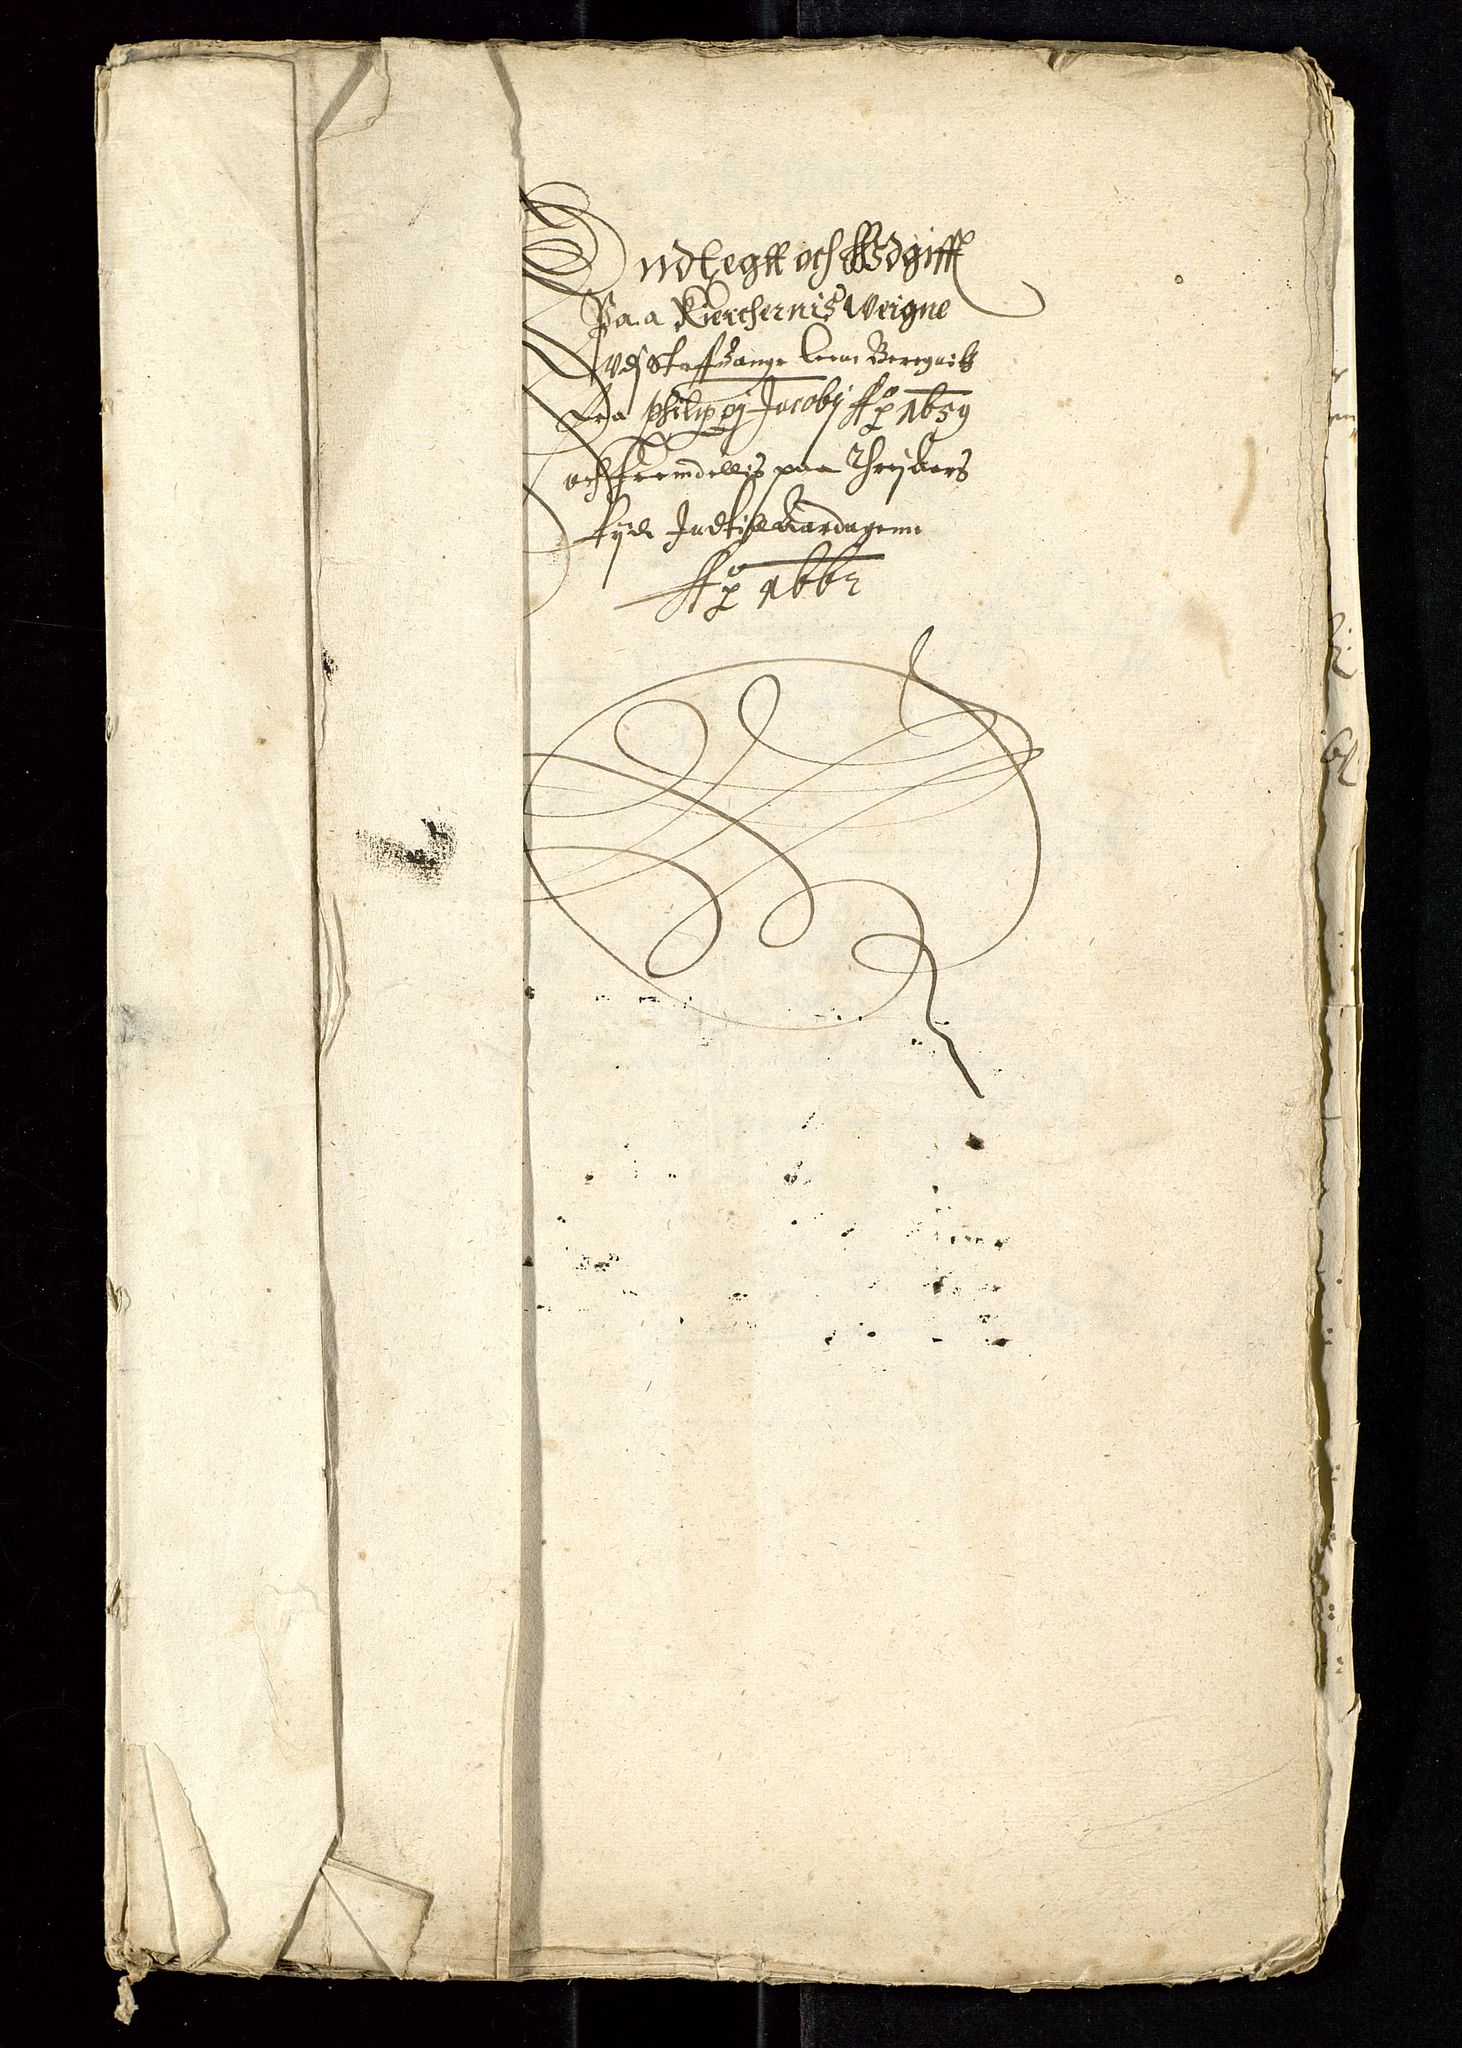 Indtegtt och Wdgifft
Paa Kierchernis Weigne
Vdj Staffuanger Leen Beregnitt
fra Philippj Jacobj Ao 1659
och fremdellis paa Threj Aars
tijd Indtill Aardagenn
Ao 1662